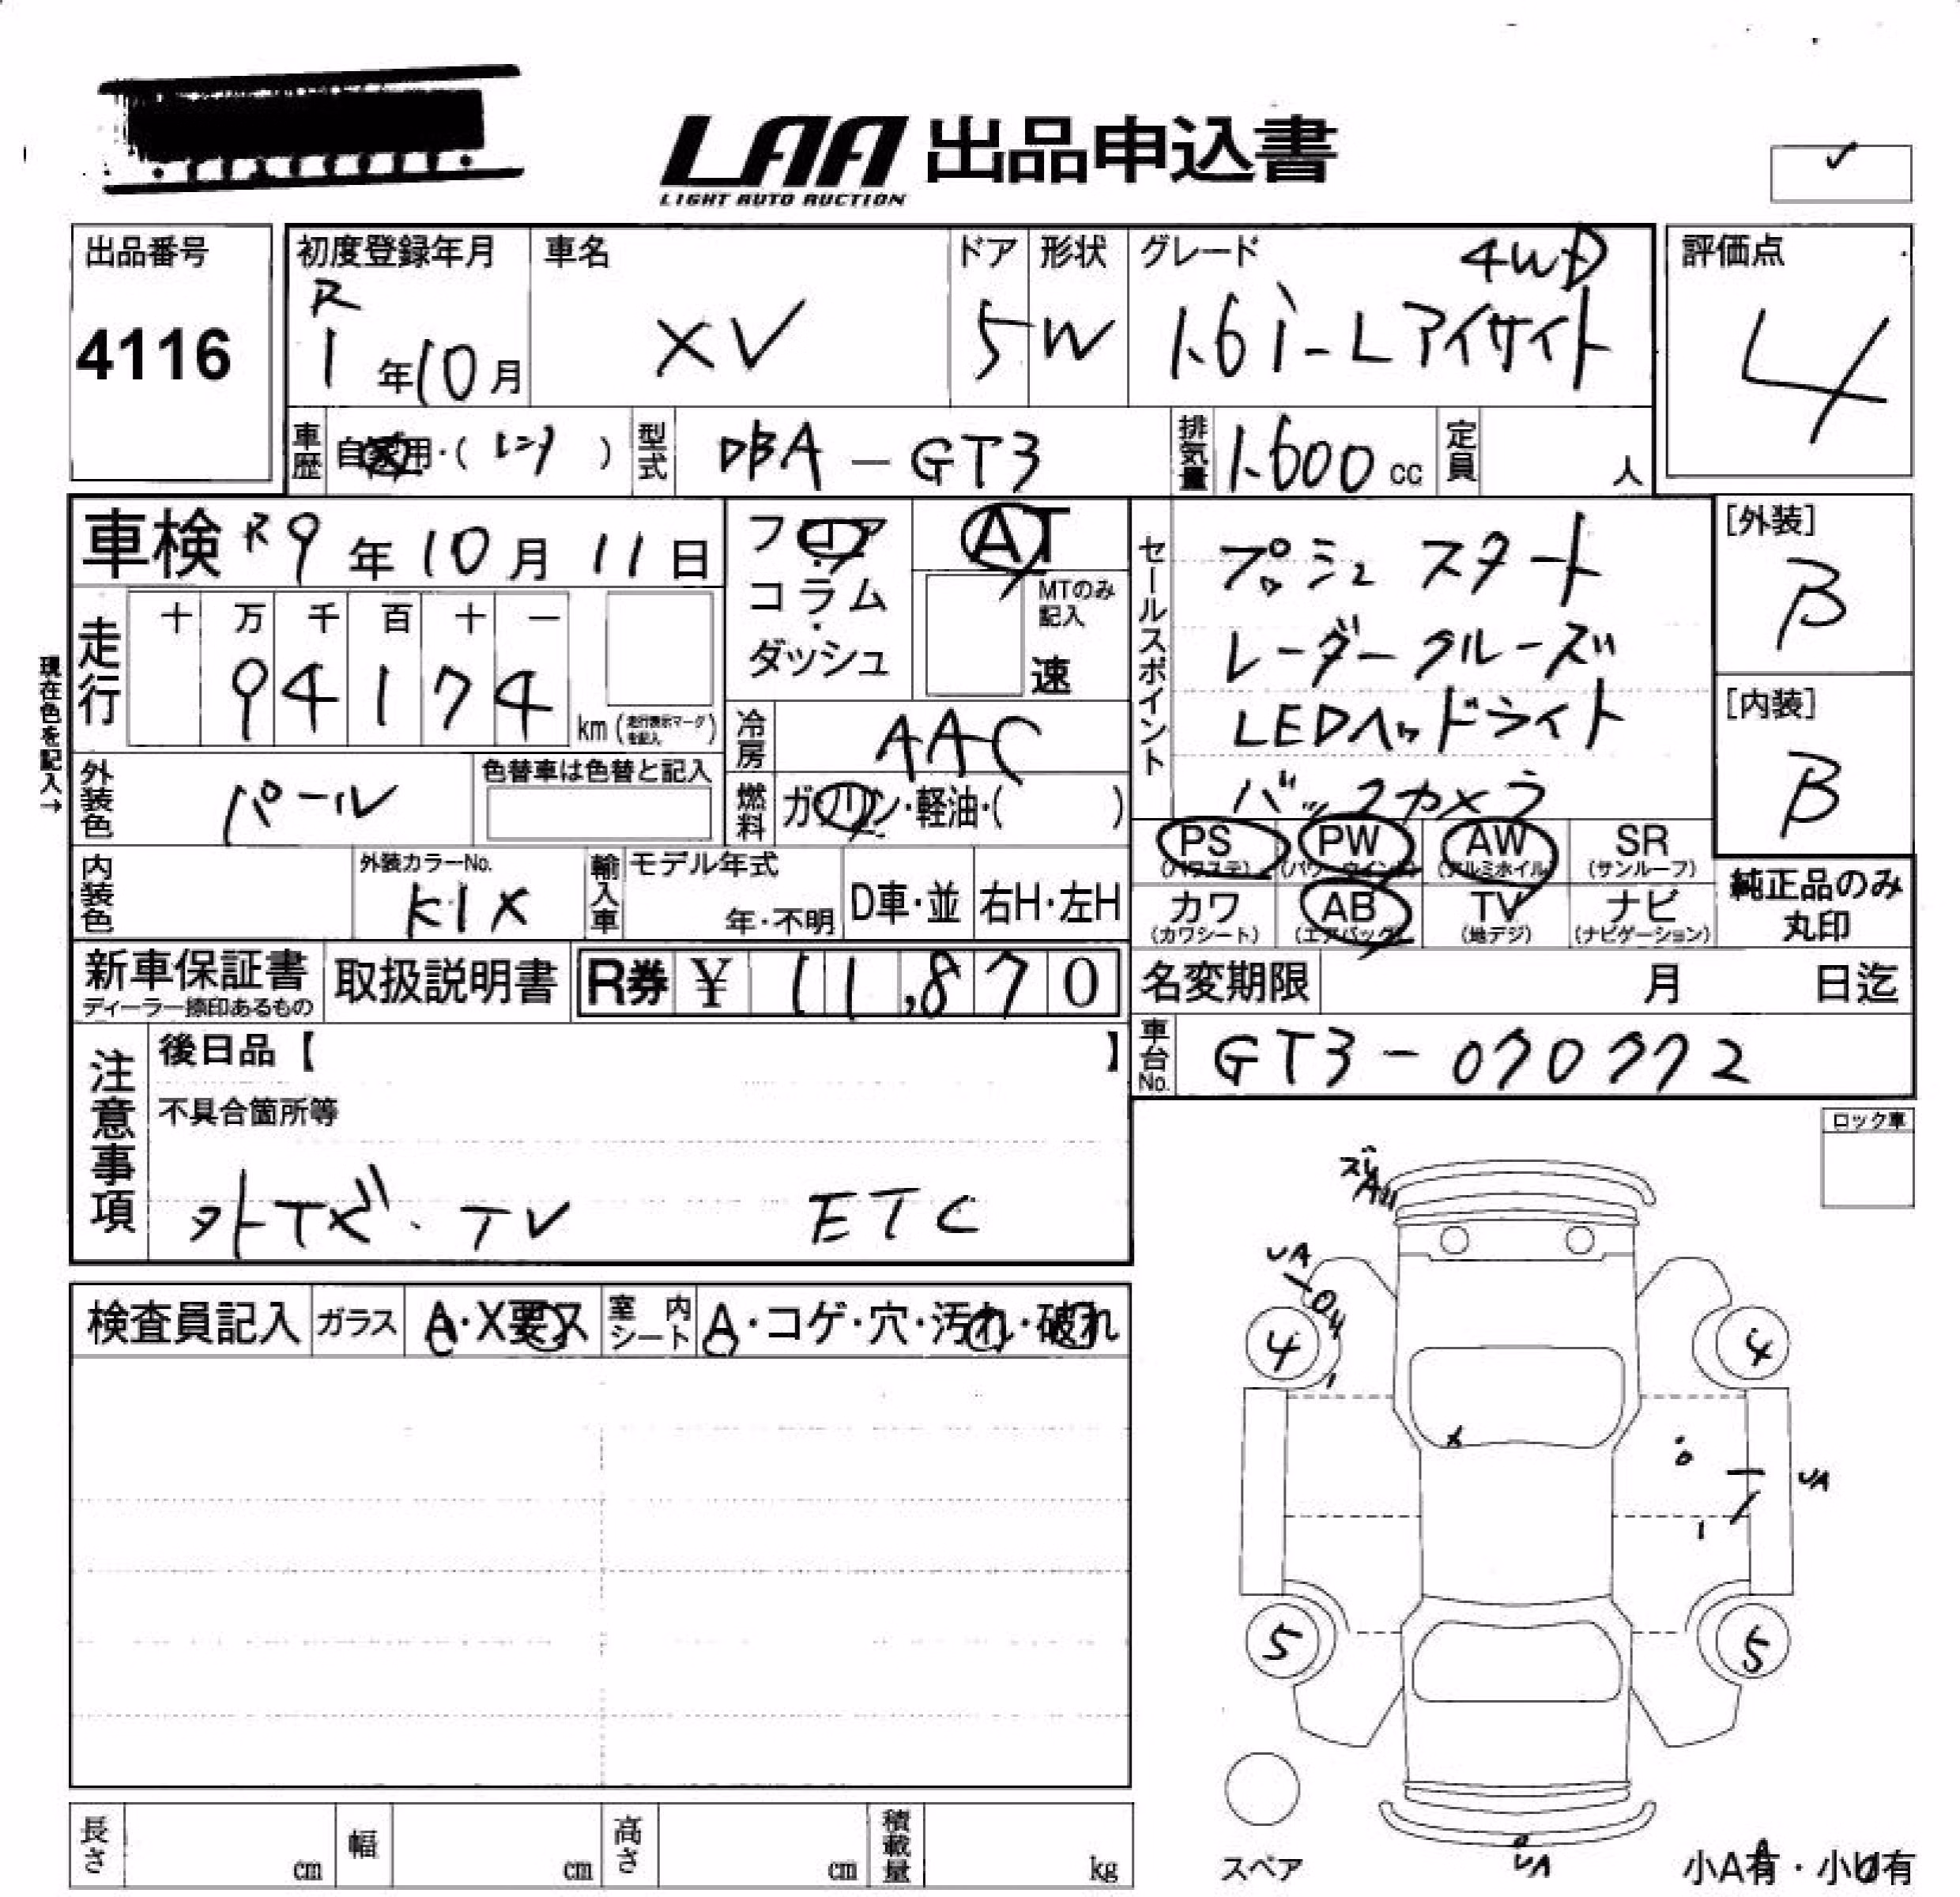 LAA 出品申込書
LIGHT AUTO AUCTION
出品番号
4116
初度登録年月
R
1 年 10 月
車名
XV
ドア
5
形状
W
グレード
4WD
1.6i-L アイサイト
評価点
4
車歴
自家用・( レンタ )
型式
DBA-GT3
排気量
1.600 cc
定員
人
車検 R9 年 10 月 11 日
フロア
コラム
ダッシュ
AT
MTのみ
記入
速
セールスポイント
プッシュスタート
レーダークルーズ
LEDヘッドライト
バックカメラ
[外装]
B
[内装]
B
現在色を記入→
走行
十 万 千 百 十 一
94174
km (走行表示マークを記入)
冷房
AAC
燃料
ガソリン・軽油・( )
外装色
パール
色替車は色替と記入
内装色
外装カラーNo.
K1X
輸入車
モデル年式
年・不明
D車・並
右H・左H
PS
(パワステ)
PW
(パワーウインド)
AW
(アルミホイル)
SR
(サンルーフ)
カワ
(カワシート)
AB
(エアバック)
TV
(地デジ)
ナビ
(ナビゲーション)
純正品のみ
丸印
新車保証書
ディーラー捺印あるもの
取扱説明書
R券 ¥ 11,870
名変期限
月 日迄
車台No.
GT3-070772
注意事項
後日品【 】
不具合箇所等
外ナビ・TV ETC
ロック車
検査員記入
ガラス
A・X要ス
室内シート
A・コゲ・穴・汚れ・破れ
ズレ
A
UA
4
4
X
UA
5
5
スペア
UA
小A有・小U有
長さ
cm
幅
cm
高さ
cm
積載量
kg